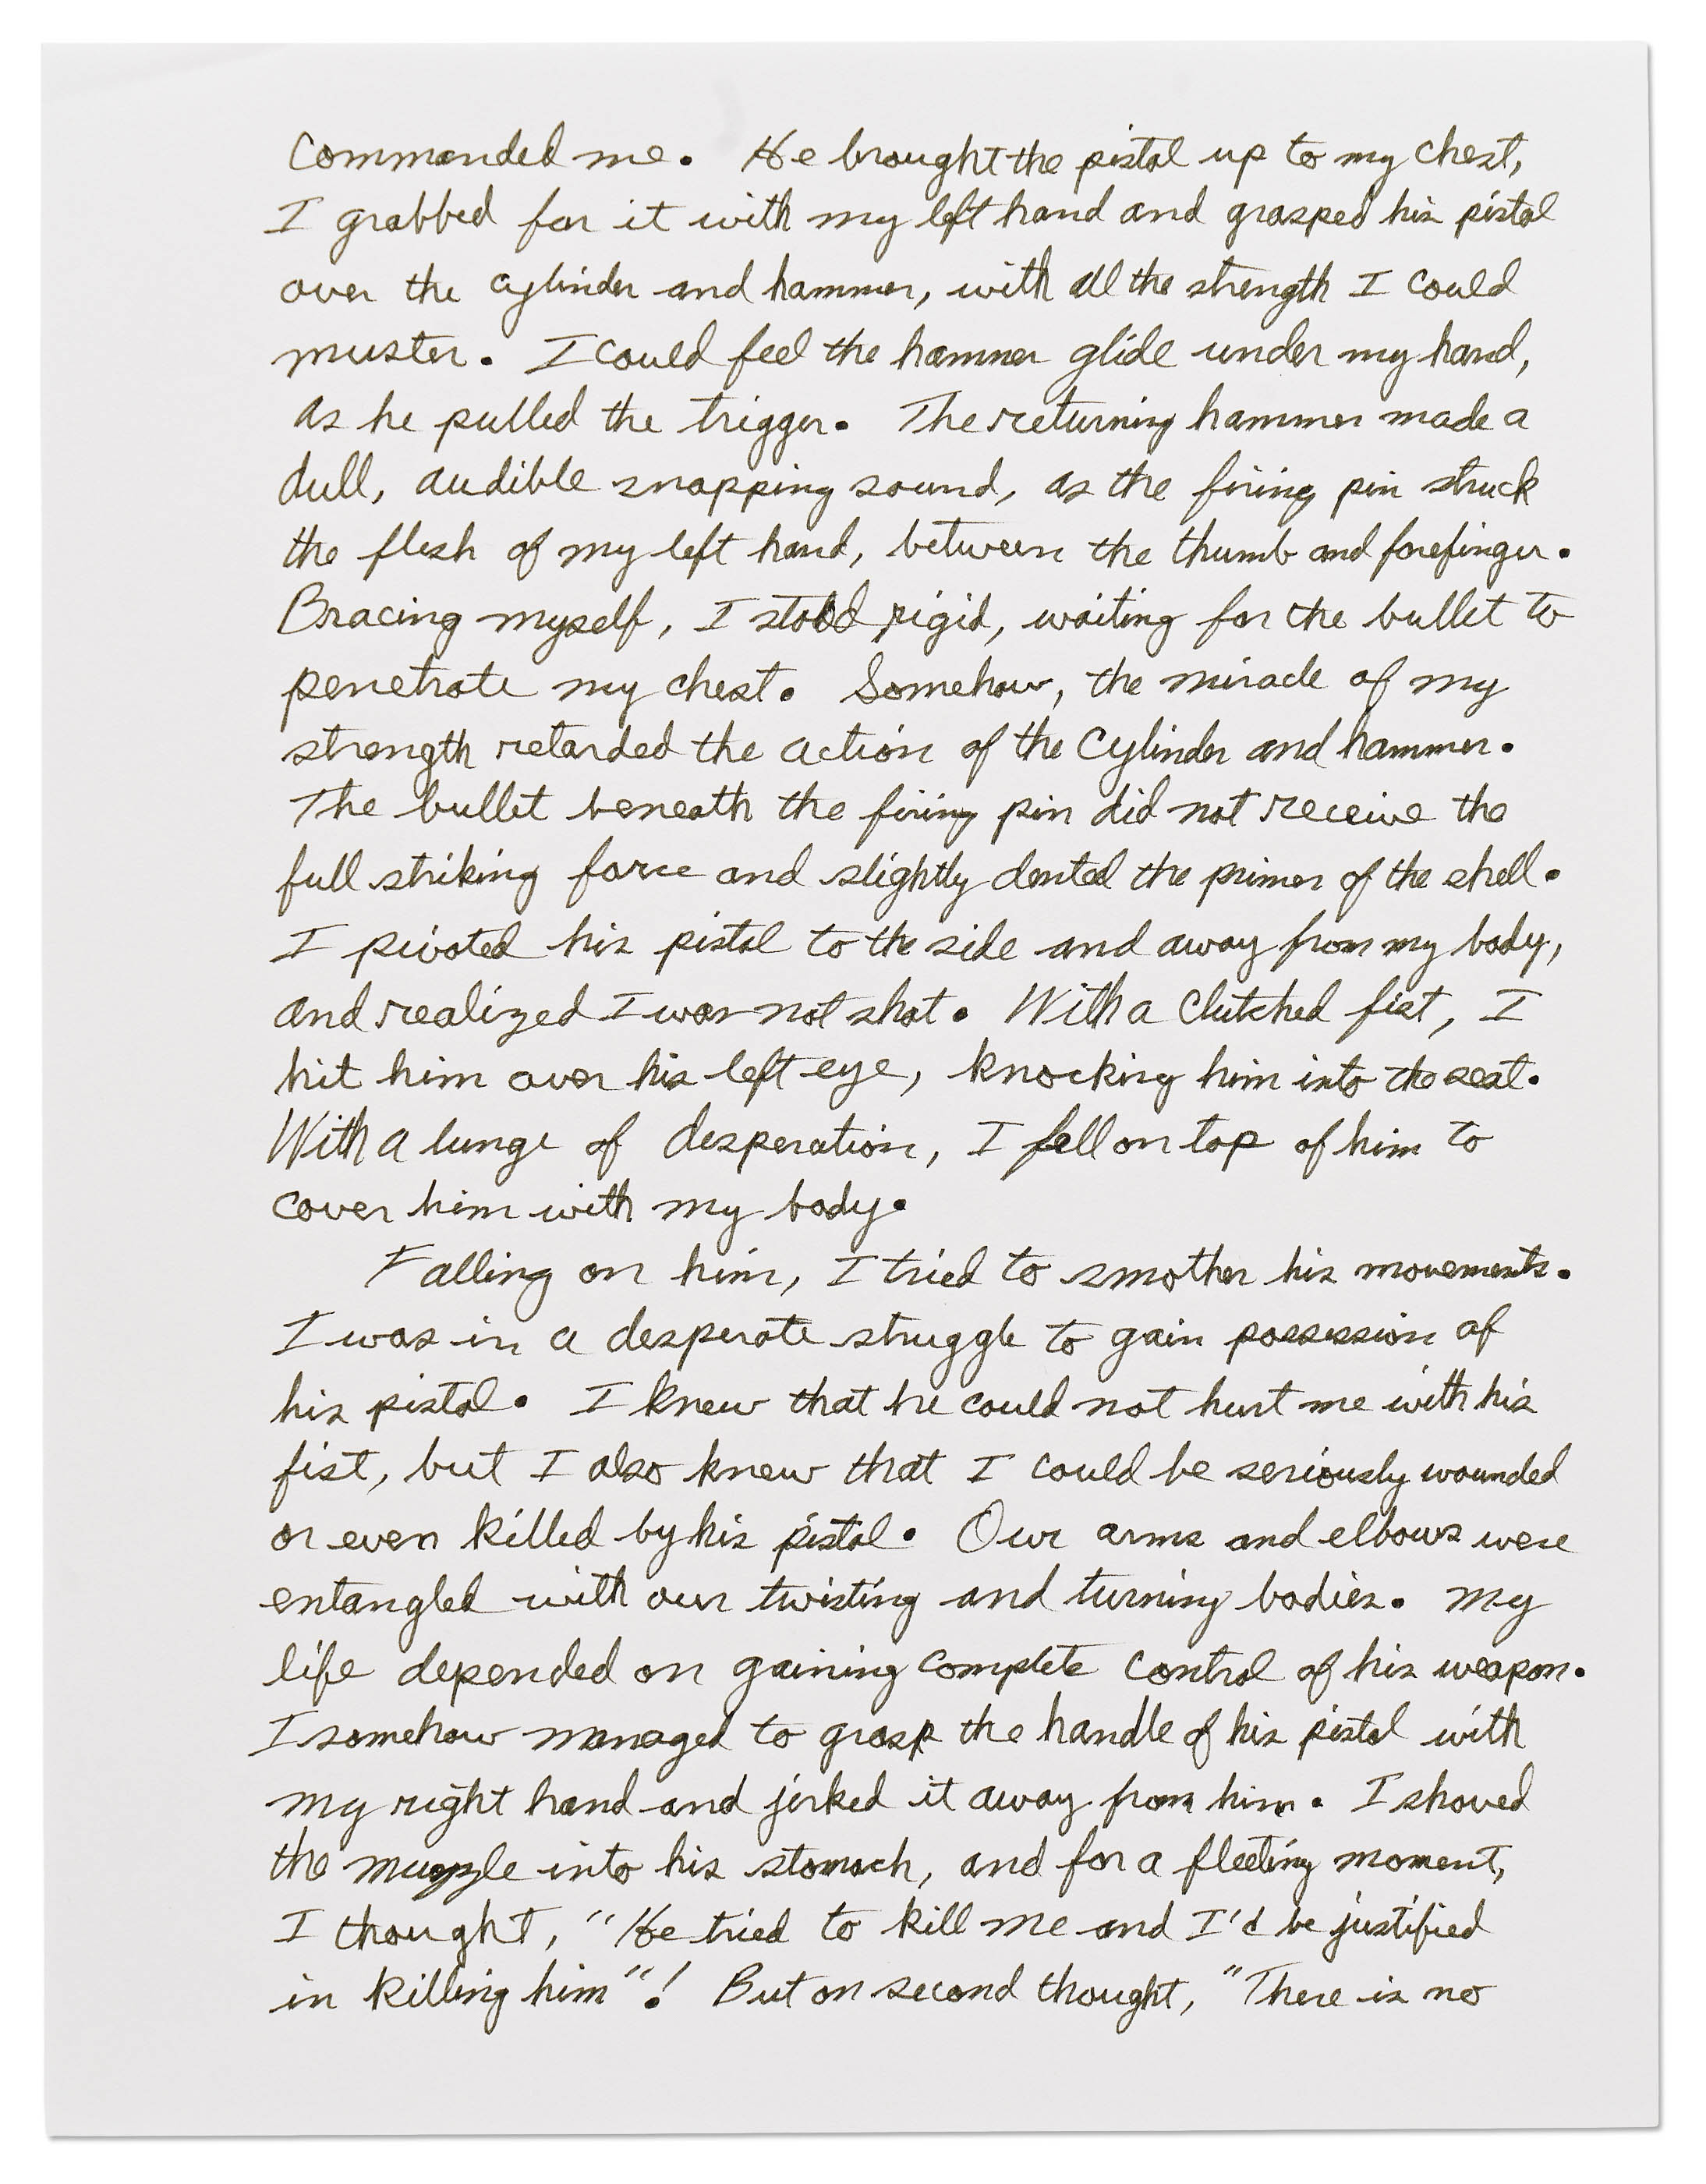 Commanded me. He brought the pistol up to my chest,
I grabbed for it with my left hand and grasped his pistol
over the cylinder and hammer, with all the strength I could
muster. I could feel the hammer glide under my hand,
as he pulled the trigger. The returning hammer made a
dull, audible snapping sound, as the firing pin struck
the flesh of my left hand, between the thumb and forefinger.
Bracing myself, I stood rigid, waiting for the bullet to
penetrate my chest. Somehow, the miracle of my
strength retarded the action of the cylinder and hammer.
The bullet beneath the firing pin did not receive the
full striking force and slightly dented the primer of the shell.
I pivoted his pistol to the side and away from my body,
and realized I was not shot. With a clutched fist, I
hit him over his left eye, knocking him into the seat.
With a lunge of desperation, I fell on top of him to
cover him with my body.
Falling on him, I tried to smother his movements.
I was in a desperate struggle to gain possession of
his pistol. I knew that he could not hurt me with his
fist, but I also knew that I could be seriously wounded
or even killed by his pistol. Our arms and elbows were
entangled with our twisting and turning bodies. My
life depended on gaining complete control of his weapon.
I somehow managed to grasp the handle of his pistol with
my right hand and jerked it away from him. I shoved
the muzzle into his stomach, and for a fleeting moment,
I thought, "He tried to kill me and I'd be justified
in killing him"! But on second thought, "There is no